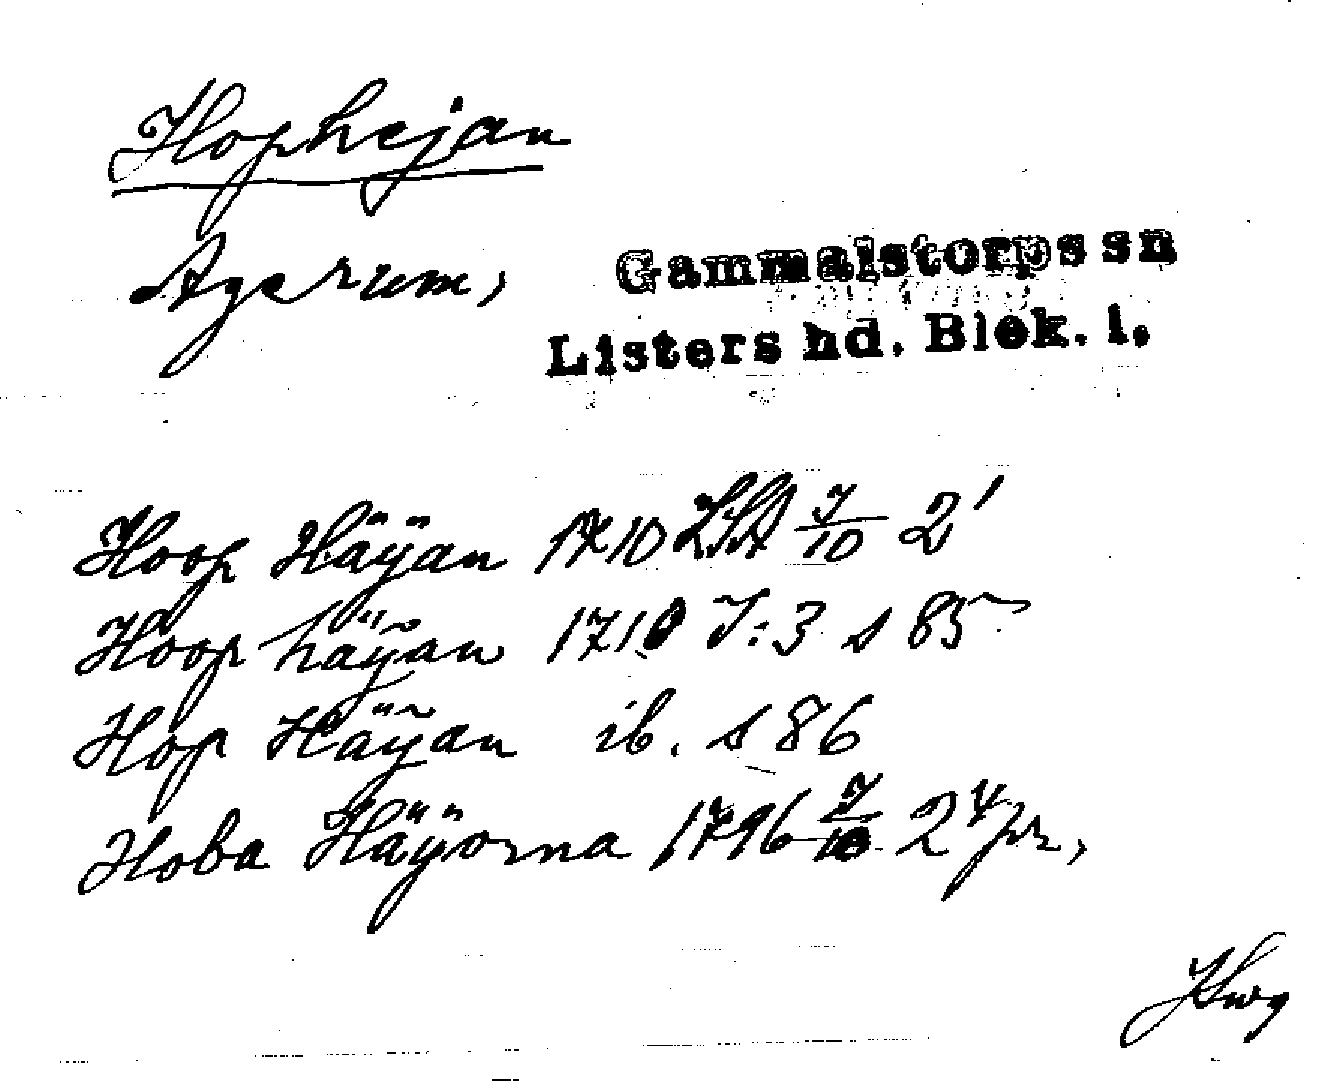 Hophejan
Agerum, Gammalstorps sn
Listers hd. Blek. l.
Hoop Häÿan 1710 LSA J/10 2'
Hoop häÿan 1710 J:3 s 85
Hop Häÿan ib. s 86
Hoba Häÿorna 1796 J/10 2⁴ pr,